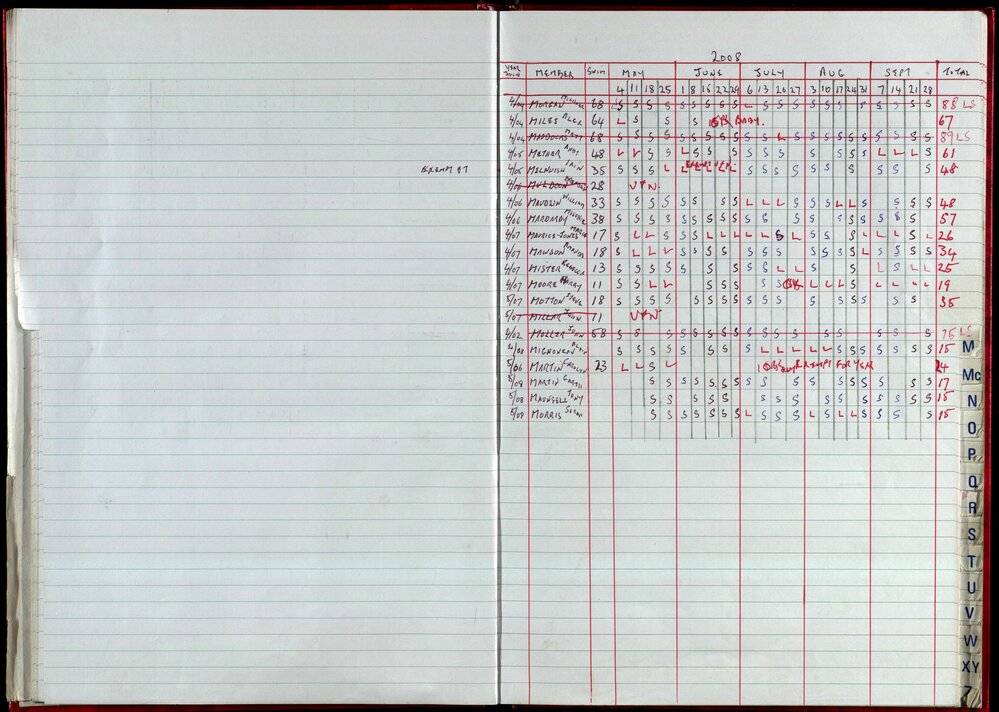 2008
YEAR JOIN MEMBER SWIM MAY JUNE JULY AUG SEPT TOTAL
4 11 18 25 1 8 15 22 29 6 13 20 27 3 10 17 24 31 7 14 21 28
4/04 MORGAN MICHAEL 68 S S S S S S S S S L S S S S S S S S S S S S 88 LS
4/04 MILES ALEX 64 L S S S BABY. 67
4/04 MADDOCKS MATT 68 S S S S S S S S S S S L S S S S S S S S S S 89 LS
4/05 METHER ANDY 48 L L S S L S S S S S S S S S S L L L S 61
EXEMPT 07
4/05 35 S S S L L L L L L S S S S S S S S S S 48
4/06 MULDOON 28 VPN.
4/06 MAUDLIN WILLIAM 33 S S S S S S S S L L L S S S L L S S S S 48
4/06 38 S S S S S S S S S S S S S S S S S S S 57
4/07 MAURICE-JONES MARK 17 S L L S S L L L L L L S L S S S L L L S L 26
4/07 MAWSON AMANDA 18 S L L L S S S S S S S S S S S L S S S S 34
4/07 MISTER REBECCA 13 S S S S S S S S S L L S S L S L L 25
4/07 MOORE HARRY 11 S S L L S S S S S OK L L L S L L L L 19
5/07 MOTTON STEVE 18 S S S S S S S S S S S S S S S S S S S 35
5/07 MILLAR JOHN 11 VPN
4/02 MOLLER JOHN 58 S S S S S S S S S S S S S S S S S S 75 LS
4/08 MIGNONEAU ALAIN S S S S S S S S S L L L L L S S S S S S S S 15
5/06 MARTIN CAROLYN 23 L L S L EXEMPT FOR YEAR 24
5/08 MARTIN GARTH S S S S S S S S S S S S S S S S S 17
5/08 MAUNSELL TONY S S S S S S S S S S S S S S S 15
5/08 MORRIS SUSAN S S S S S S S L S S S L S L L S S S 15
M
Mc
N
O
P
Q
R
S
T
U
V
W
XY
Z